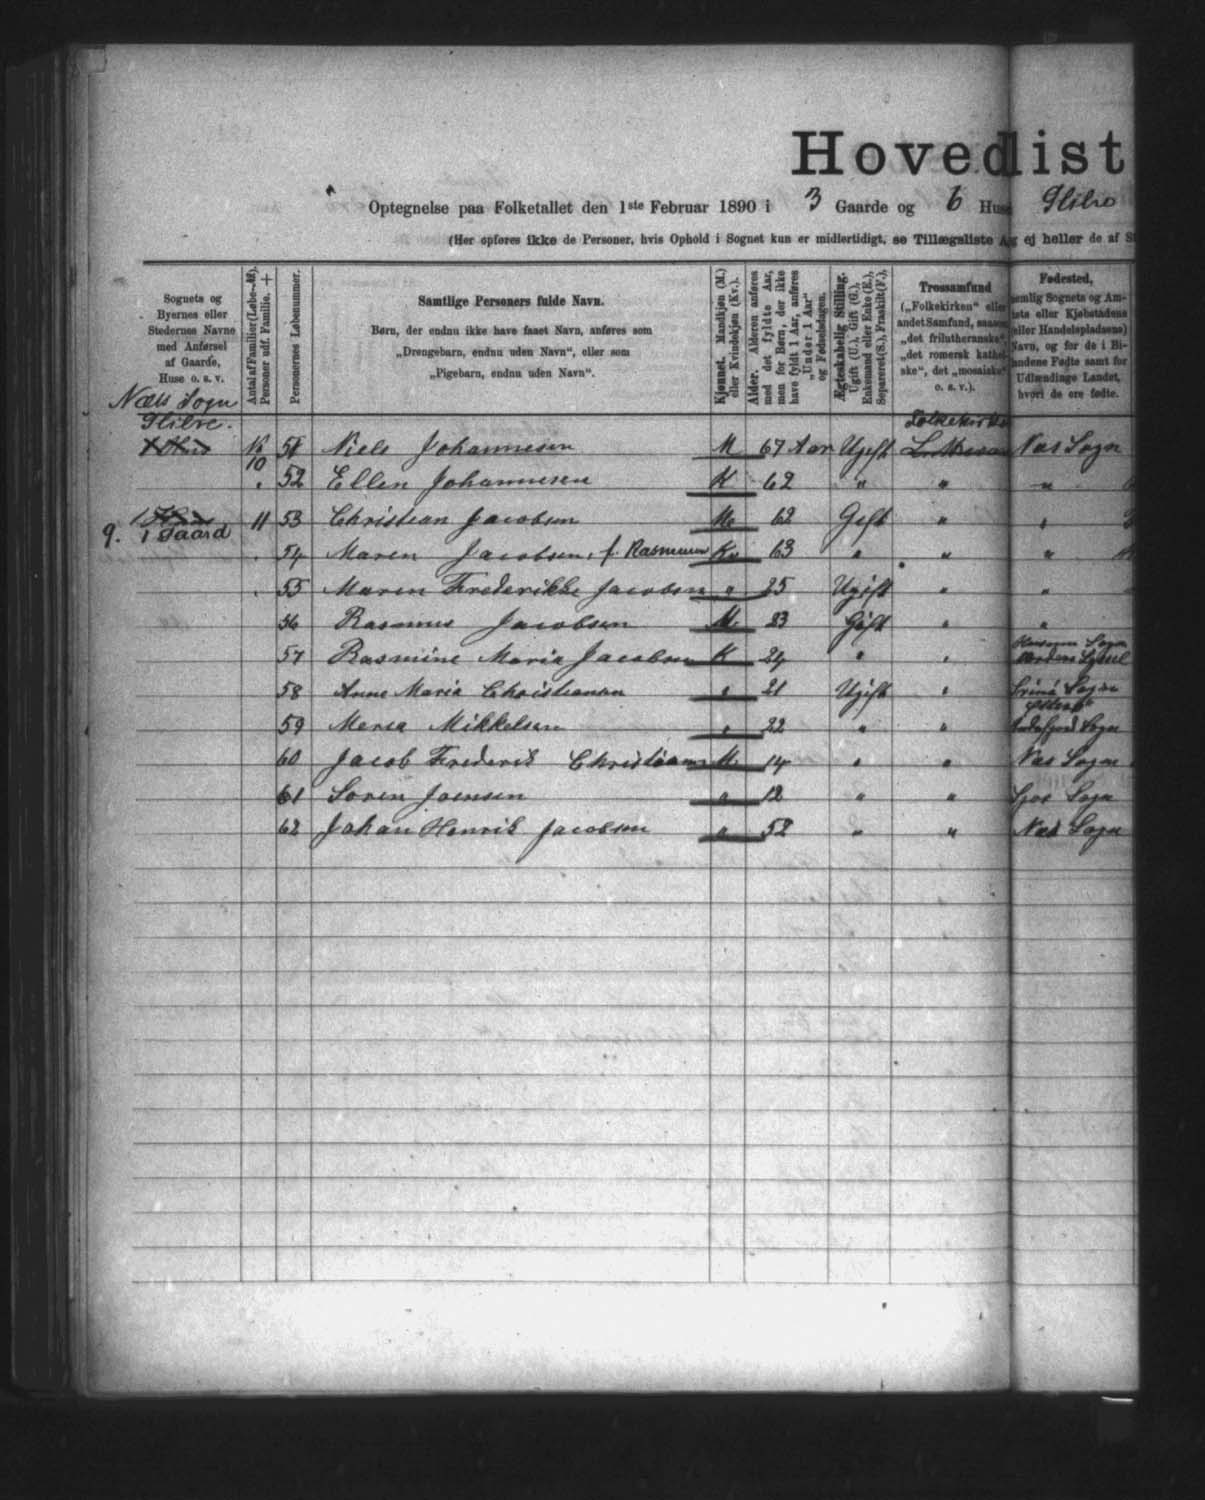 Hovedlist
Optegnelse paa Folketallet den 1ste Februar 1890 i 3 Gaarde og 6 Huse Glibre
(Her opføres ikke de Personer, hvis Ophold i Sognet kun er midlertidigt, se Tillægsliste A, og ej heller de af S
Sognets og Byernes eller Stedernes Navne med Anførsel af Gaarde, Huse o. s. v.
Antal af Familier (Løbe-№). Personer udf. Familie. +
Personernes Løbenummer.
Samtlige Personers fulde Navn.
Børn, der endnu ikke have faaet Navn, anføres som
„Drengebarn, endnu uden Navn“, eller som
„Pigebarn, endnu uden Navn“.
Kjønnet. Mandkjøn (M.) eller Kvindekjøn (Kv.).
Alder. Alderen anføres med det fyldte Aar, men for Børn, der ikke have fyldt 1 Aar, anføres „Under 1 Aar“ og Fødselsdagen.
Ægteskabelig Stilling. Ugift (U.), Gift (G.), Enkemand eller Enke (E.), Separeret (S.), Fraskilt (F.).
Trossamfund
(„Folkekirken“ eller andet Samfund, saasom „det frilutheranske“, „det romersk katholske“, det „mosaiske“ o. s. v.).
Fødested,
nemlig Sognets og Amtets eller Kjøbstadens (eller Handelspladsens) Navn, og for de i Bilandene Fødte samt for Udlændinge Landet, hvori de ere fødte.
Næs Sogn
Glibre.
Folkekirke
51 Niels Johannesen M 67 Aar Ugift Næs Sogn
10
52 Ellen Johannesen K 62 " " "
11 53 Christian Jacobsen M. 62 Gift " "
9. 1 Gaard
54 Maren Jacobsen, f. Rasmussen Kv 63 " " "
55 Maren Frederikke Jacobsen " 25 Ugift " "
56 Rasmus Jacobsen M. 23 Gift " "
57 Rasmine Maria Jacobsen K 24 " "
58 Anne Maria Christiansen " 21 Ugift " Sogn
59 Maria Mikkelsen " 22 " " Sogn
60 Jacob Frederik Christians M. 14 " " Næs Sogn
61 Soren Joensen " 12 " " Sogn
62 Johan Henrik Jacobsen " 52 " " Næs Sogn